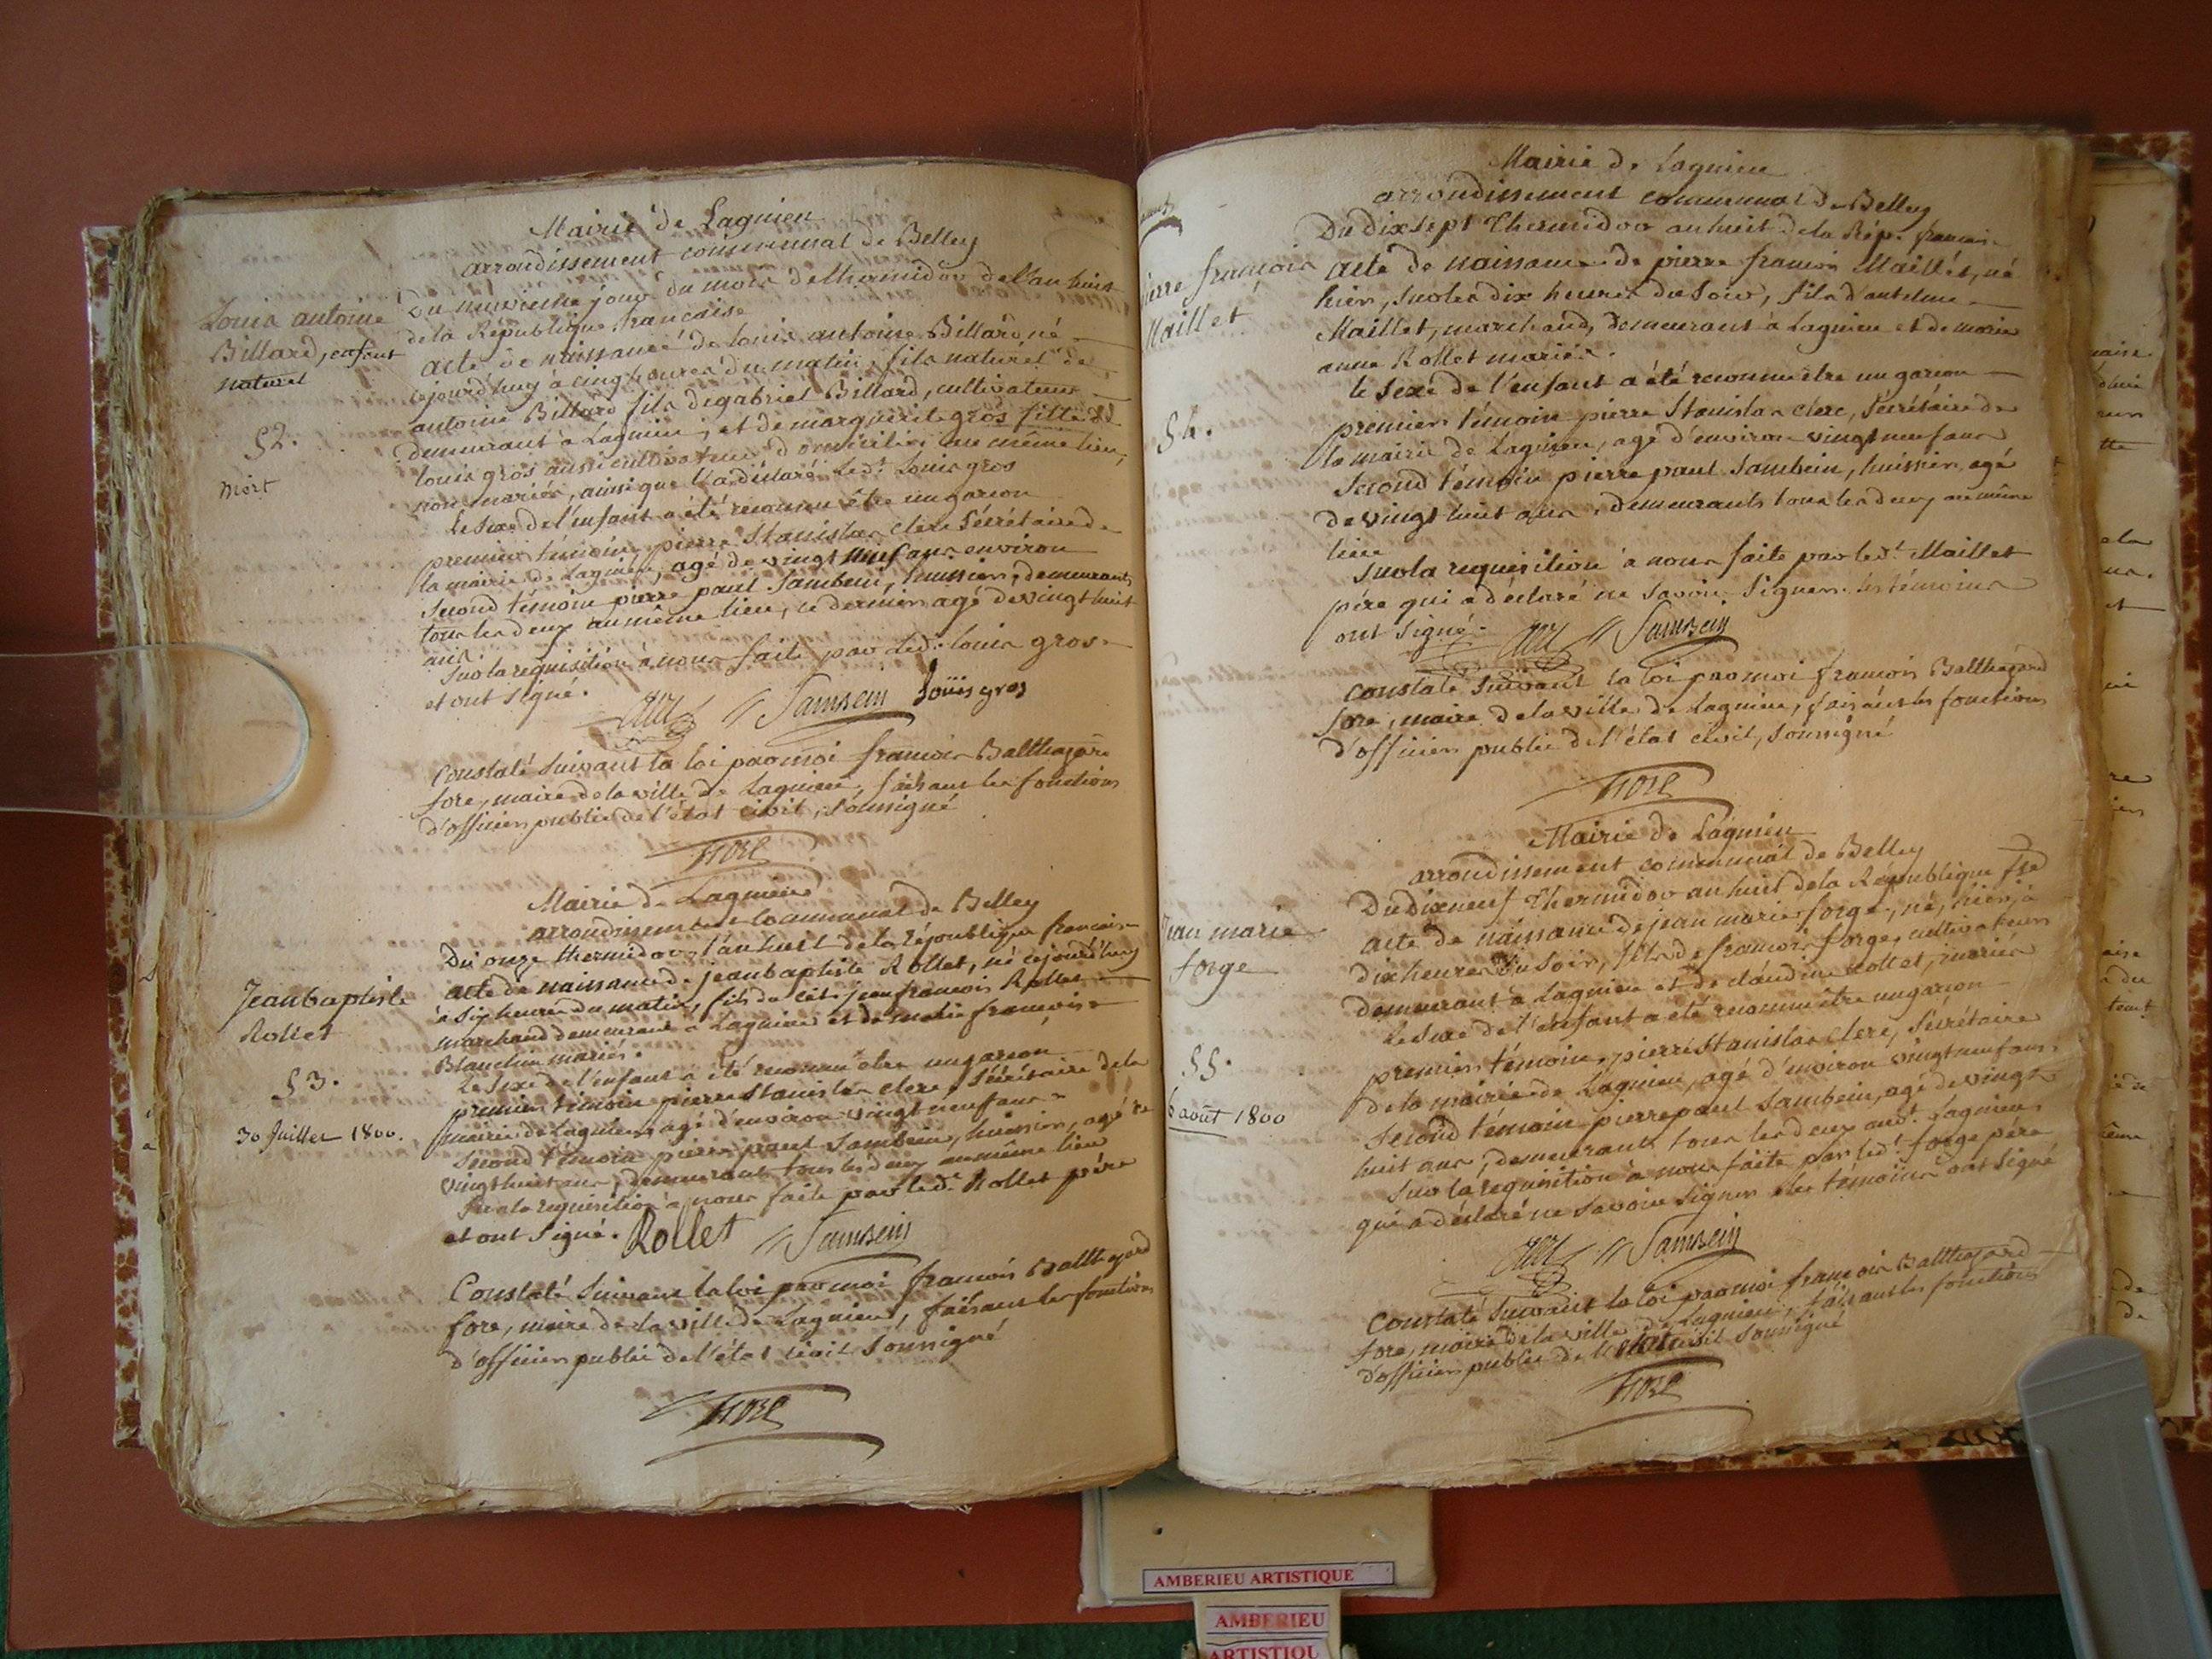 Mairie de Lagnieu
arrondissement communal de Belley
Louis antoine
Billard, enfant
naturel
52.
Mort
Du neuvieme jour du mois de thermidor de l'an huit
de la République francaise
acte de naissance de Louis antoine Billard, né
cejourd'huy à cinq heures du matin, fils naturel de
antoine Billard fils de gabriel Billard, cultivateur
demeurant à Lagnieu, et de marguerite gros fille de
louis gros aussi cultivateur domiciliés au même lieu,
non mariés, ainsi que l'a déclaré led.t Louis gros
le sexe de l'enfant a été reconnu être un garcon
premier témoin pierre Stanislas clerc Sécrétaire de
la mairie de Lagnieu, agé de vingt neuf ans environ
second témoin pierre paul Sambein, huissier, demeurants
tous les deux au même lieu, ce dernier agé de vingt huit
ans
Sur la requisition à nous faite par led.t louis gros
et ont signé.
Sambein Louis gros
Constaté suivant la loi par moi francois Balthazard
fore, maire de la ville de Lagnieu, faisant les fonctions
d'officier public de l'état civil, soussigné
fore
Mairie de Lagnieu
arrondissement communal de Belley
Jean baptiste
Rollet
53.
30 Juillet 1800.
Du onze thermidor l'an huit de la République francaise
acte de naissance de jean baptiste Rollet, né cejourd'huy
à six heures du matin, fils de cit. jean francois Rollet
marchand demeurant à Lagnieu et de marie francoise
Blanchin mariés.
Le sexe de l'enfant a été reconnu etre un garcon
premier témoin pierre Stanislas clerc, Sécrétaire de la
mairie de Lagnieu, agé d'environ vingt neuf ans
second témoin pierre paul Sambein, huissier, agé de
vingt huit ans, demeurants tous les deux au même lieu
Sur la requisition à nous faite par led.t Rollet père
et ont signé. Rollet Sambein
Constaté suivant la loi par moi francois Balthazard
fore, maire de la ville de Lagnieu, faisant les fonctions
d'officier public de l'état civil soussigné
fore
Mairie de Lagnieu
arrondissement communal de Belley
pierre francois
Maillet
54.
Du dix sept Thermidor an huit de la Rép. francaise
acte de naissance de pierre francois Maillet, né
hier, sur les dix heures du soir, fils d'antelme
Maillet, marchand, demeurant à Lagnieu et de marie
anne Rollet mariés.
le sexe de l'enfant a été reconnu etre un garcon
premier témoin pierre Stanislas clerc, Sécrétaire de
la mairie de Lagnieu, agé d'environ vingt neuf ans
second témoin pierre paul Sambein, huissier, agé
de vingt huit ans, demeurants tous les deux au même
lieu
Sur la requisition à nous faite par led.t Maillet
père qui a déclaré ne savoir signer. les témoins
ont signé.
Sambein
Constaté suivant la loi par moi francois Balthazard
fore, maire de la ville de Lagnieu, faisant les fonctions
d'officier public de l'état civil, soussigné
fore
Mairie de Lagnieu
arrondissement communal de Belley
Jean marie
forge
55.
6 août 1800
Du dix neuf Thermidor an huit de la République fse
acte de naissance de jean marie forge, né, hier, à
dix heures du soir, fils de francois forge, cultivateur
demeurant à Lagnieu et de claudine Rollet, mariés
Le sexe de l'enfant a été reconnu être un garcon
premier témoin, pierre Stanislas clerc, Sécrétaire
de la mairie de Lagnieu, agé d'environ vingt neuf ans
second témoin pierre paul Sambein, agé de vingt
huit ans, demeurants tous les deux aud.t Lagnieu
Sur la requisition à nous faite par led.t forge père
qui a déclaré ne savoir signer les témoins ont signé
Sambein
Constaté suivant la loi par moi francois Balthazard
fore, maire de la ville de Lagnieu, faisant les fonctions
d'officier public de l'état civil soussigné
fore
AMBERIEU ARTISTIQUE
AMBERIEU
ARTISTIQU